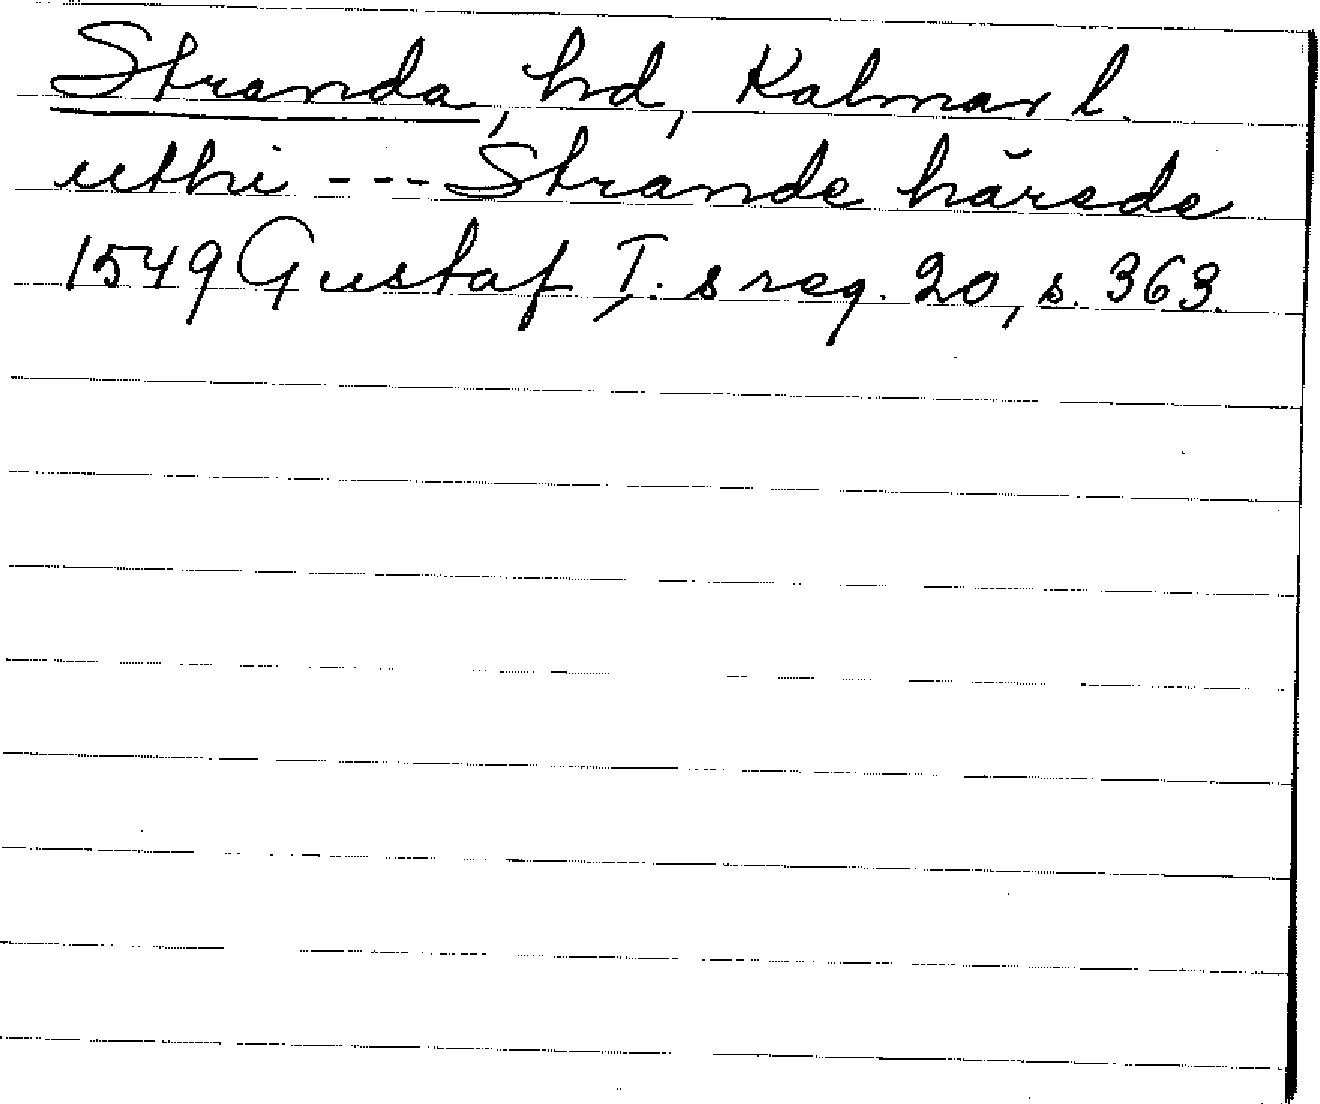 Stranda, hd, Kalmar l.
uthi --- Strande härede
1549 Gustaf I:s reg. 20, s. 363.